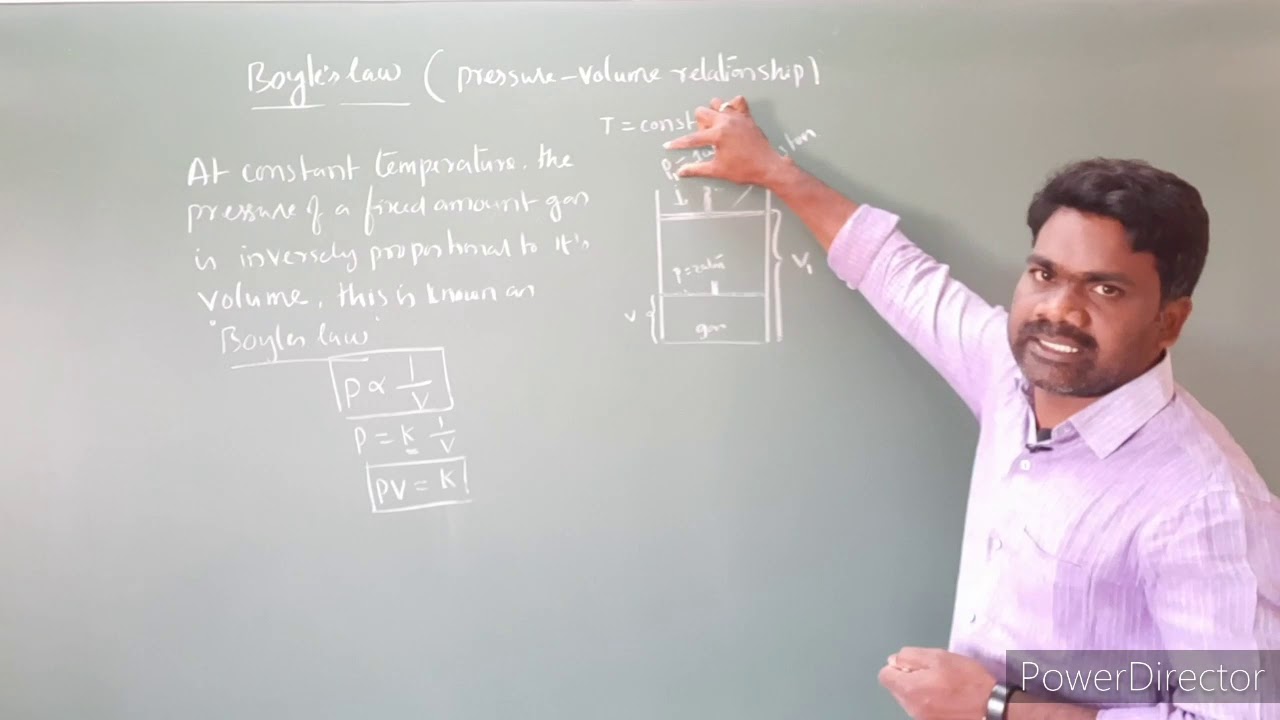 Boyle's law ( pressure – volume relationship )
T = const
At constant temperature. the
pressure of a fixed amount gas
is inversely proportional to it's
volume, this is known as
"Boyles law"
P ∝ 1/V
P = K 1/V
PV = K
V₁
V
gas
PowerDirector